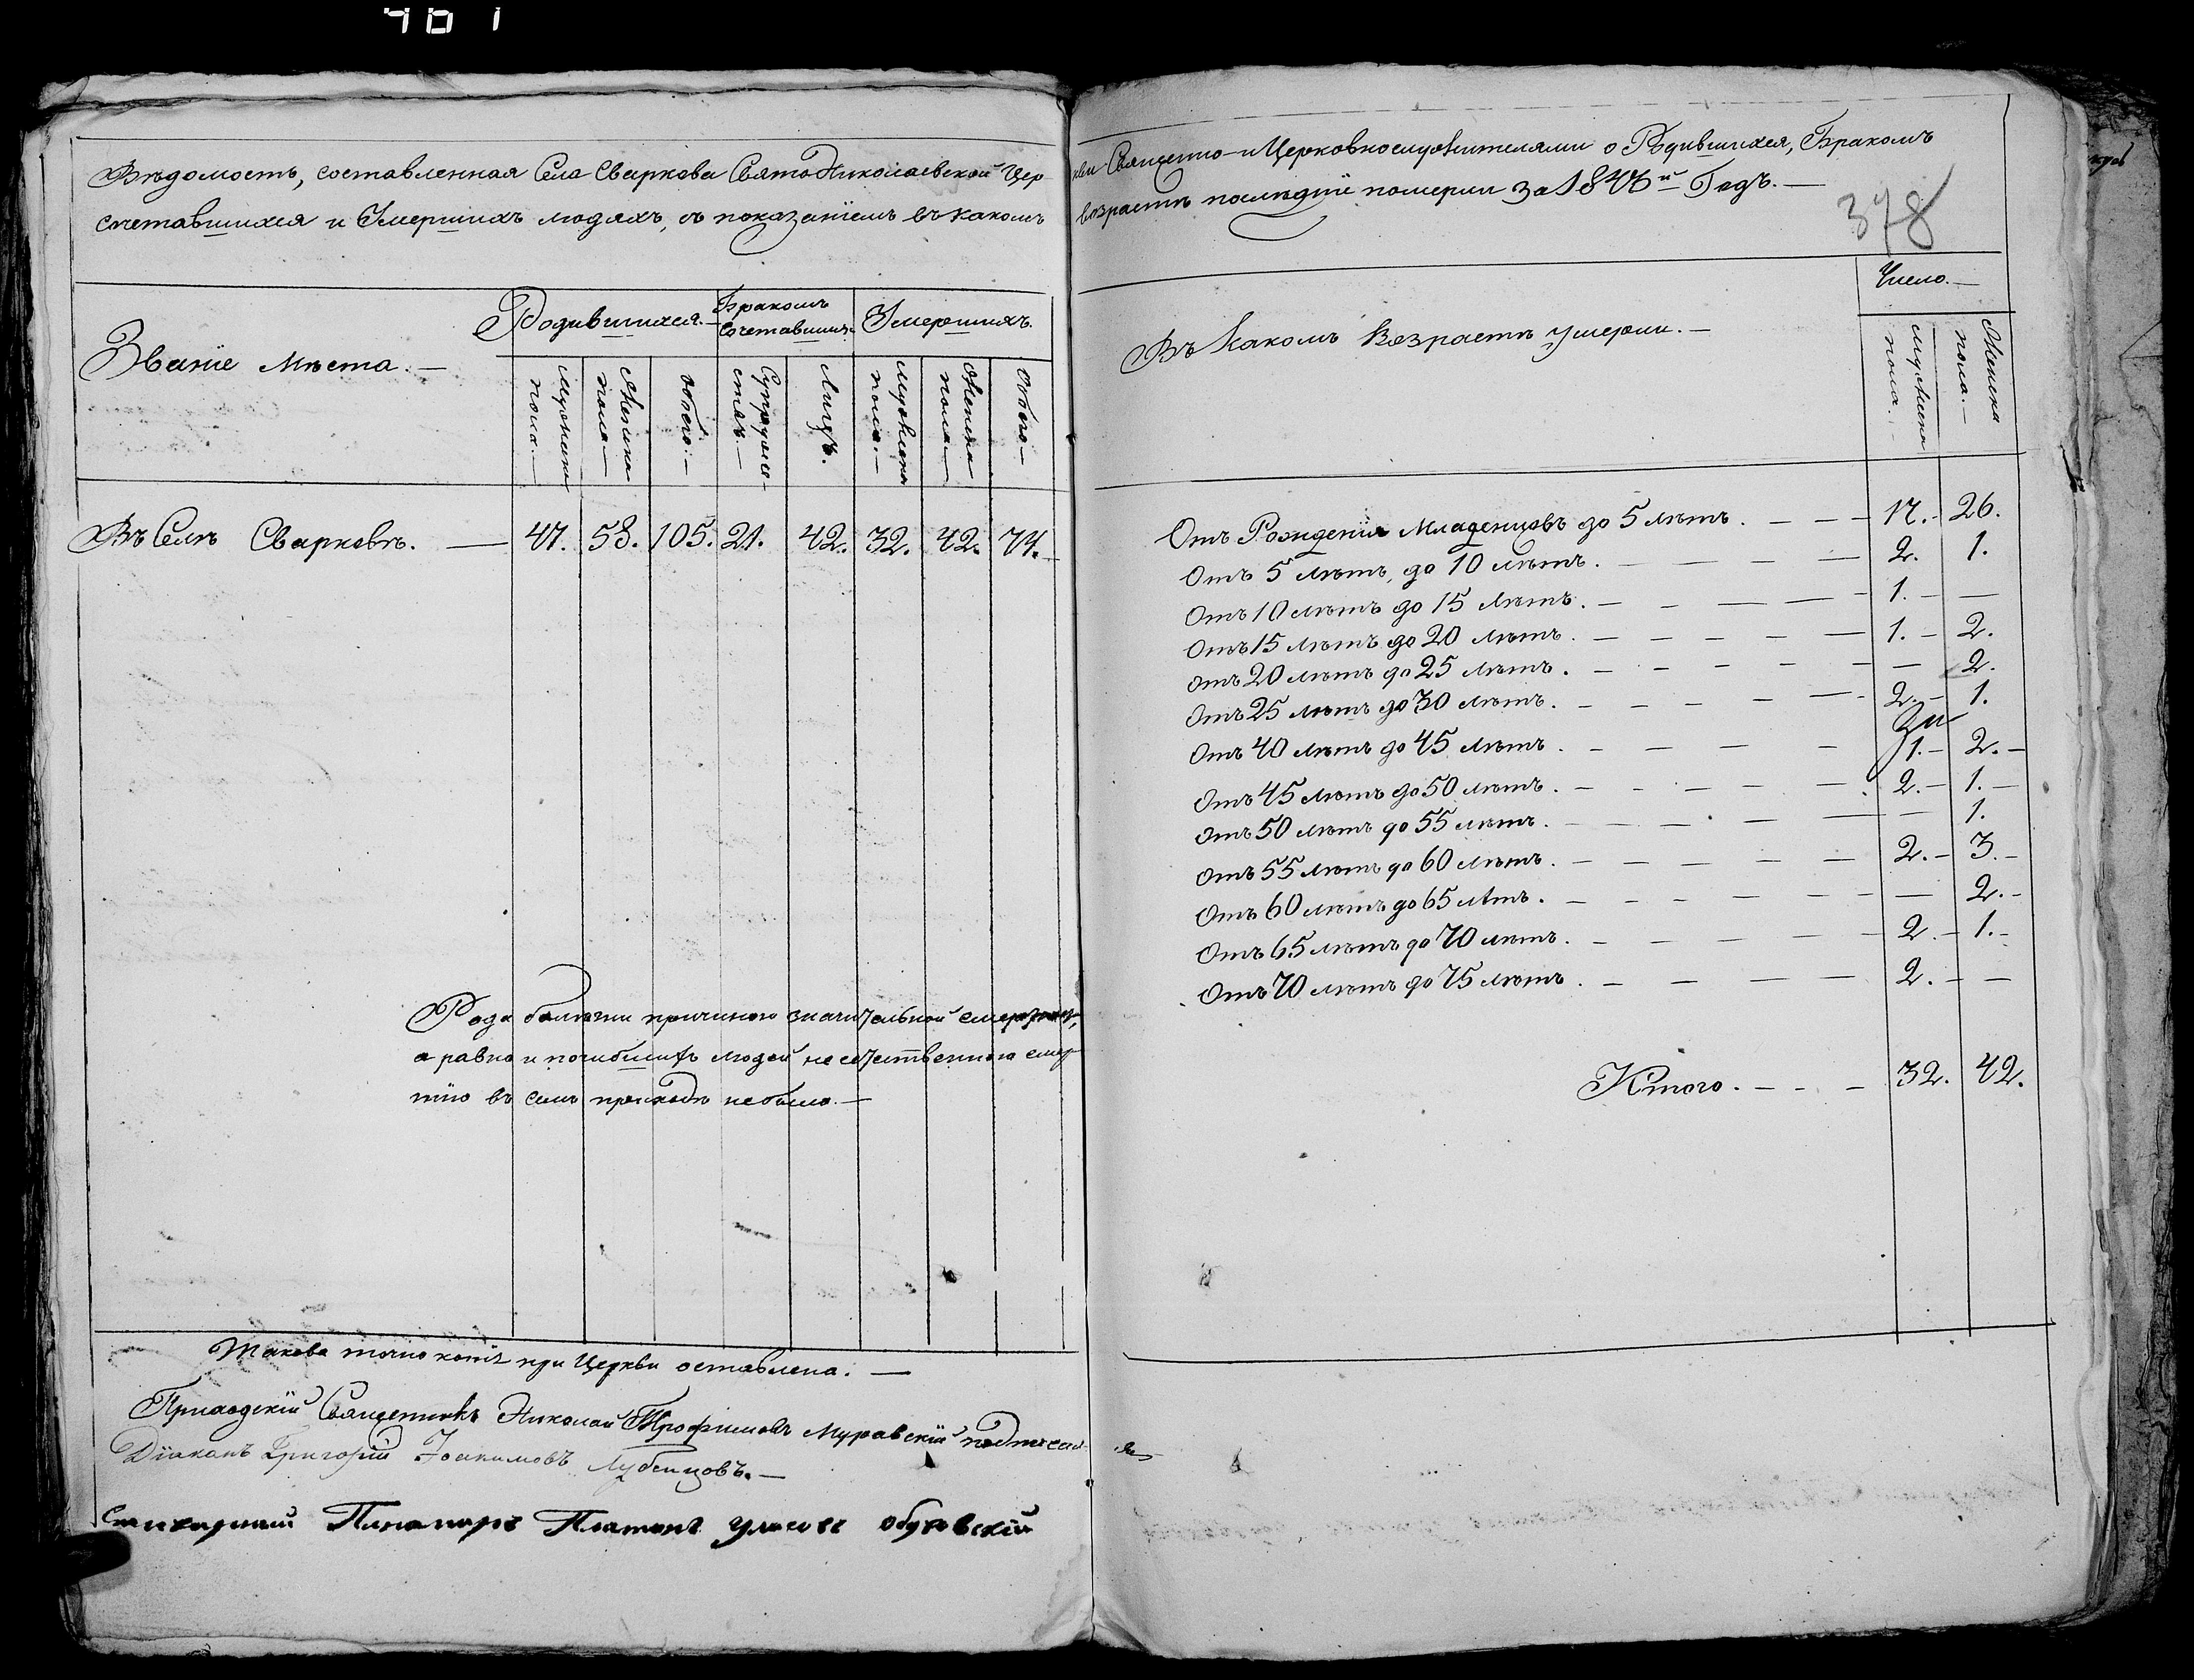 Вѣдомость, составленная Села Сваркова СвятоНиколаевской Цер-
сочетавшихся и Умершихъ людяхъ, съ показанїемъ въ какомъ
Званїе мѣста. —
Родившихся. —
Бракомъ Сочетавших:
Умершихъ.
мужеска пола. —
Женска пола —
обоего: —
Супруже-ствъ. —
Лицъ.
мужеска пола. —
Женска пола —
Обоего —
Въ Селѣ Сварковѣ. — 47. 58. 105. 21. 42. 32. 42. 74.
Рода болѣзни причиною значительной смертности,
а равно и погибшихъ людей не естественною смер
тїю въ семъ приходѣ небыло. —
Такова точно копїя при Церкви оставлена. —
Приходскїй Священникъ Николай Трофимовъ Муравскїй подписался
Дїаконъ Григорїй Іоакимовъ Лубенцовъ. —
Стихарный Пономарь Платонъ обуховскїй
401
кви Священно-и Церковнослужителями о Родившихся, Бракомъ
возрастѣ послѣднїе померли за Годъ. —
378
Въ Какомъ Возрастѣ умерли. —
Число. —
мужеска пола. —
Женска пола. —
Отъ Рожденїя Младенцовъ до 5 лѣтъ. — — — 17. — 26.
Отъ 5 лѣтъ, до 10 лѣтъ. — — — — 2. 1.
Отъ 10 лѣтъ до 15 лѣтъ. — — — — 1. — —
Отъ 15 лѣтъ до 20 лѣтъ. — — — — — 1. — 2.
Отъ 20 лѣтъ до 25 лѣтъ. — — — — — — 2.
Отъ 25 лѣтъ до 30 лѣтъ. — — — — — 2. — 1.
Отъ 40 лѣтъ до 45 лѣтъ. — — — — 1. — 2. —
Отъ 45 лѣтъ до 50 лѣтъ. — — — — — 2. — 1. —
Отъ 50 лѣтъ до 55 лѣтъ. — — — — — — 1.
Отъ 55 лѣтъ до 60 лѣтъ. — — — — — 2. — 3. —
Отъ 60 лѣтъ до 65 лѣтъ. — — — — — — — 2. —
Отъ 65 лѣтъ до 70 лѣтъ. — — — — — 2. — 1. —
Отъ 70 лѣтъ до 75 лѣтъ. — — — — 2. — —
Итого. — — — 32. 42.